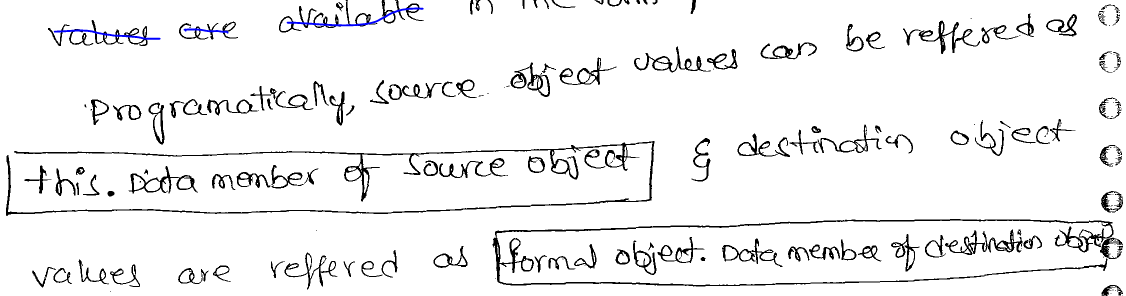 values are available in the
Programatically, source object values can be reffered as
this. Data member of source object & destination object
values are reffered as formal object. Data member of destination object